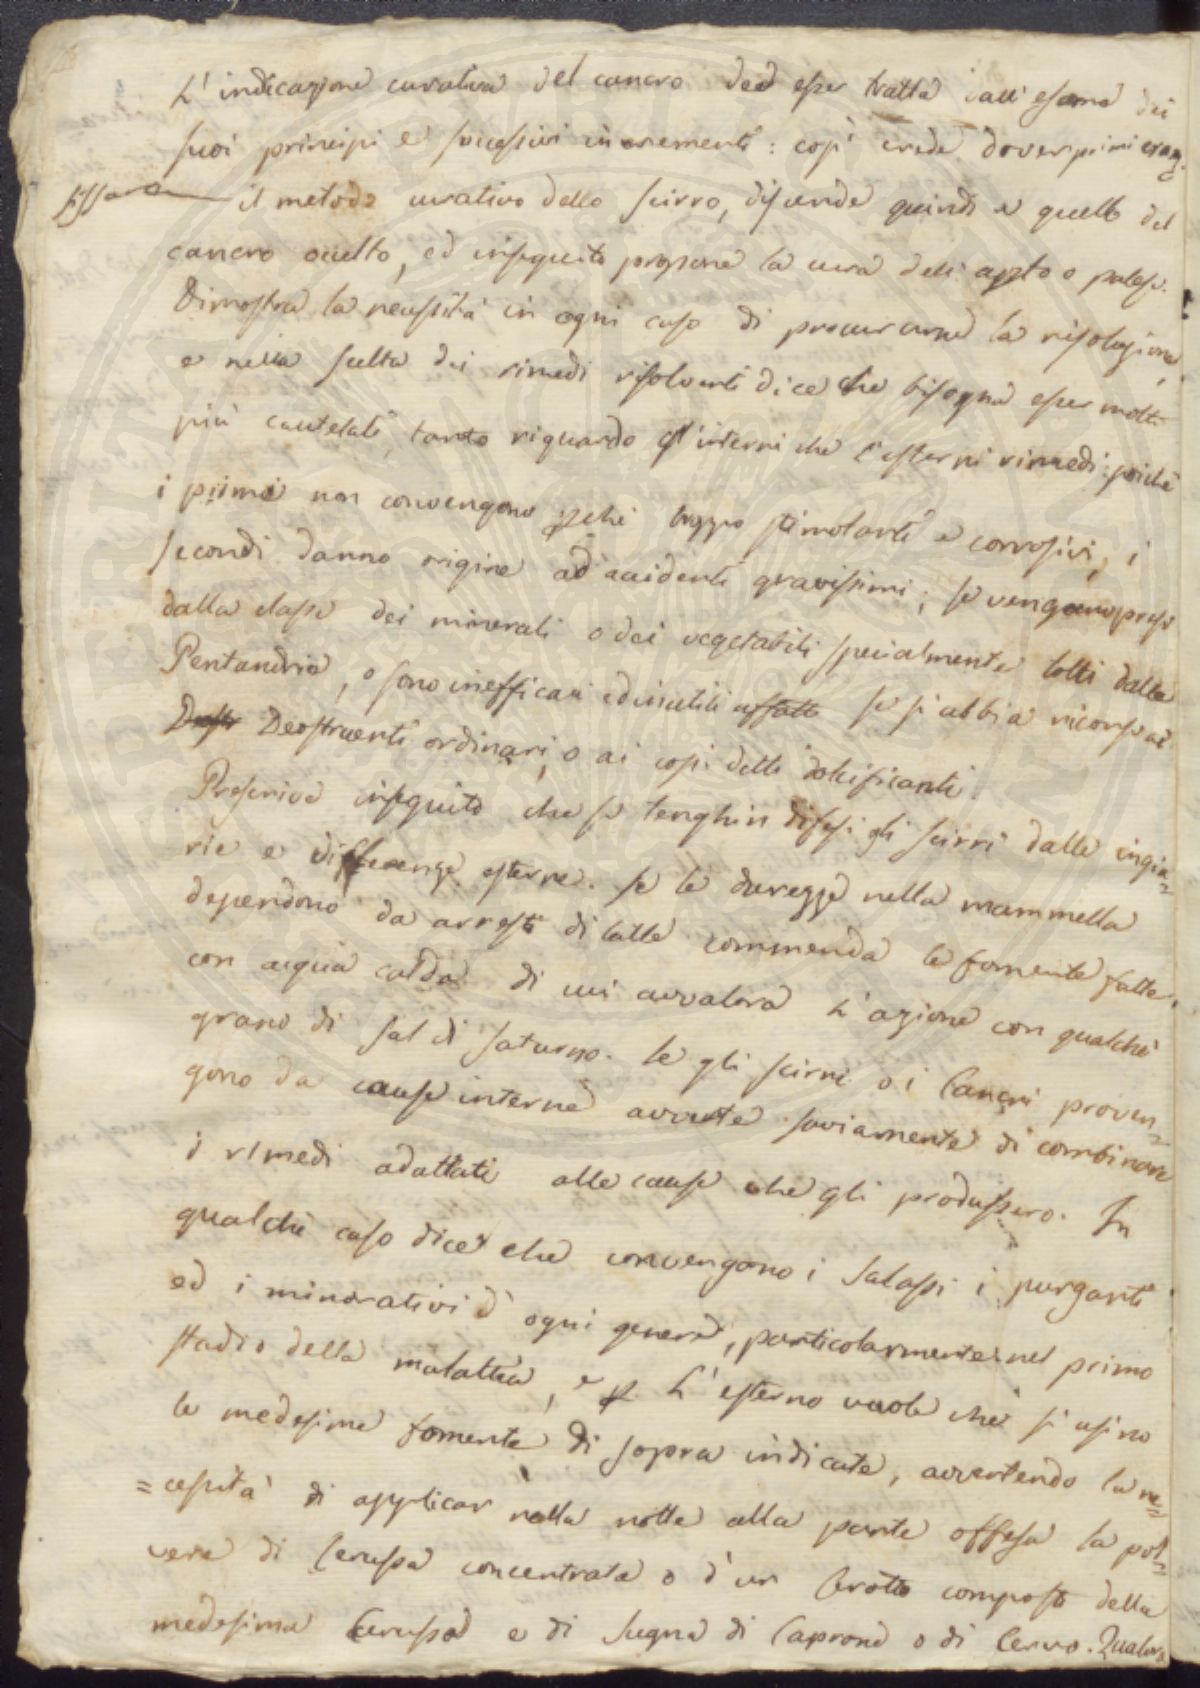 L'indicazione curativa del cancro deve esser tratta dall'esame dei
suoi principi e successivi incrementi: così crede dover primieram.
fissare il metodo curativo dello scirro, discende quindi a quello del
cancro occulto, ed inseguito propone la cura dell'apto o palese.
Dimostra la necessità in ogni caso di procurarne la risoluzione,
e nella scelta dei rimedi risolventi dice che bisogna esser molto
più cautelati, tanto riguardo gl'interni che l'esterni rimedi: poichè
i primi non convengono pchè troppo stimolanti e corrosivi, i
secondi danno origine ad accidenti gravissimi; se vengano presi
dalla classe dei minerali o dei vegetabili specialmente tolti dalla
Pentandria, o sono inefficaci ed inutili affatto se si abbia ricorso ai
Deostruenti ordinari, o ai così detti dolcificanti.
Prescrive inseguito che si tenghin difesi gli scirri dalle ingiu=
rie e esterne. Se le durezze nella mammella
dependono da arresti di latte commenda le fomente fatte
con acqua calda di cui avvalora l'azione con qualche
grano di sal di saturno. Se gli scirri o i Cancri proven=
gono da cause interne avverte saviamente di combinare
i rimedi adattati alle cause che gli produssero. In
qualche caso dice che convengono i salassi i purganti
ed i minorativi d'ogni genere, particolarmente nel primo
stadio della malattia, e p. l'esterno vuole che si usino
le medesime fomente di sopra indicate, avvertendo la ne=
=cessità di applicar nella notte alla parte offesa la pol=
vere di Cerussa concentrata o d'un Cerotto composto della
medesima Cerussa e di sugna di Caprone o di Cervo. Qualora